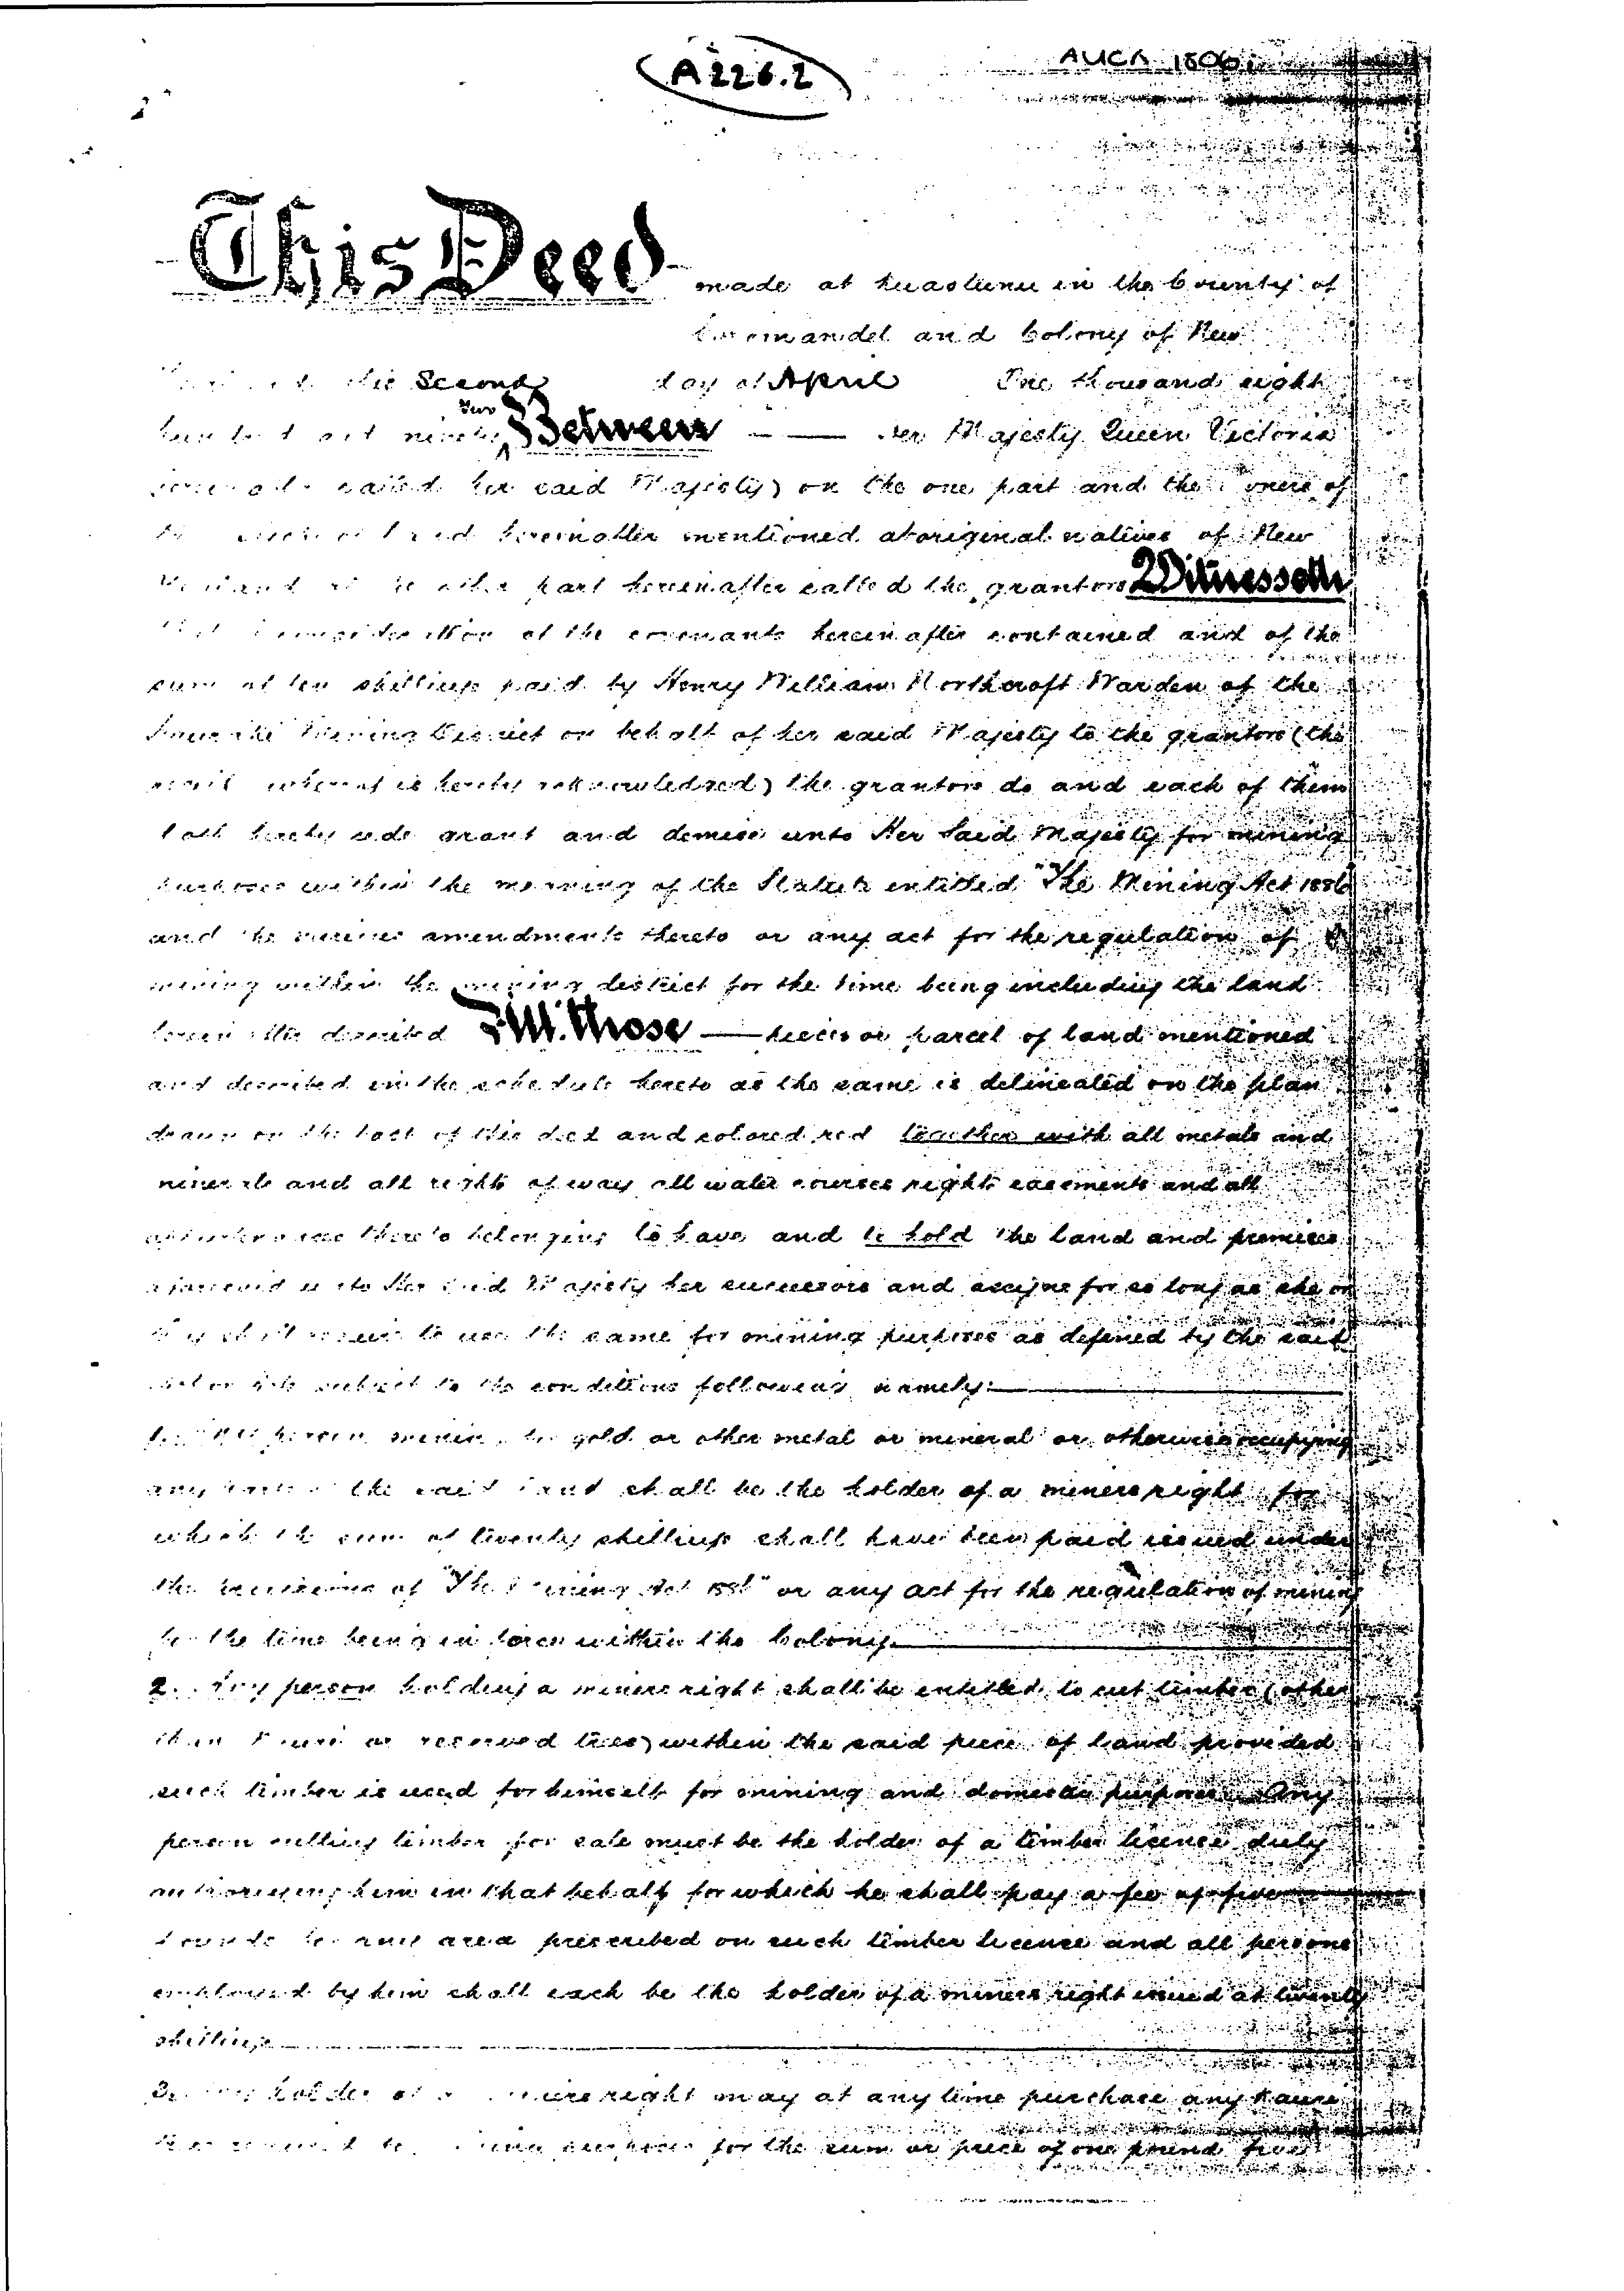 A 226.2
AUCK 1806
This Deed made at Kuaotunu in the County of
Coromandel and Colony of New
the Second day of April One thousand eight
hundred and ninety two Between Her Majesty Queen Victoria
called her said Majesty) on the one part and the owners of
land hereinafter mentioned aboriginal natives of New
Zealand of the other part hereinafter called the grantors Witnesseth
that in consideration of the covenants hereinafter contained and of the
sum of ten shillings paid by Henry William Northcroft Warden of the
Hauraki Mining District on behalf of her said Majesty to the grantors (the
receipt whereof is hereby acknowledged) the grantors do and each of them
doth hereby cede grant and demise unto Her Said Majesty for mining
purposes within the meaning of the Statute entitled "The Mining Act 1886
and the various amendments thereto or any act for the regulation of
mining within the mining district for the time being including the land
hereinafter described Firstly All Those pieces or parcel of land mentioned
and described in the schedule hereto as the same is delineated on the plan
drawn on the back of this deed and colored red together with all metals and
minerals and all rights of way all water courses rights easements and all
appurtenances thereto belonging to have and to hold the land and premises
aforesaid unto Her said Majesty her successors and assigns for so long as she or
they shall require to use the same for mining purposes as defined by the said
act or acts subject to the conditions following namely:
person mining for gold or other metal or mineral or otherwise occupying
any part of the said land shall be the holder of a miners right for
which the sum of twenty shillings shall have been paid issued under
the provisions of "The Mining Act 1886" or any act for the regulation of mining
for the time being in force within the Colony.
2. Any person holding a miners right shall be entitled to cut timber (other
than Kauri or reserved trees) within the said piece of land provided
such timber is used for himself for mining and domestic purposes. Any
person cutting timber for sale must be the holder of a timber licence duly
authorising him in that behalf for which he shall pay a fee of five
pounds for any area prescribed on such timber licence and all persons
employed by him shall each be the holder of a miners right issued at twenty
shillings
3. Any holder of a miners right may at any time purchase any Kauri
tree required for mining purposes for the sum or price of one pound five